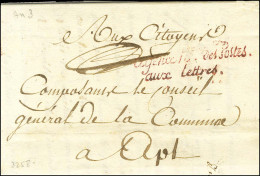 an 3
Aux Citoyens
Agence des Postes.
aux lettres.
Composants le Conseil
général de la Commune
a Apt